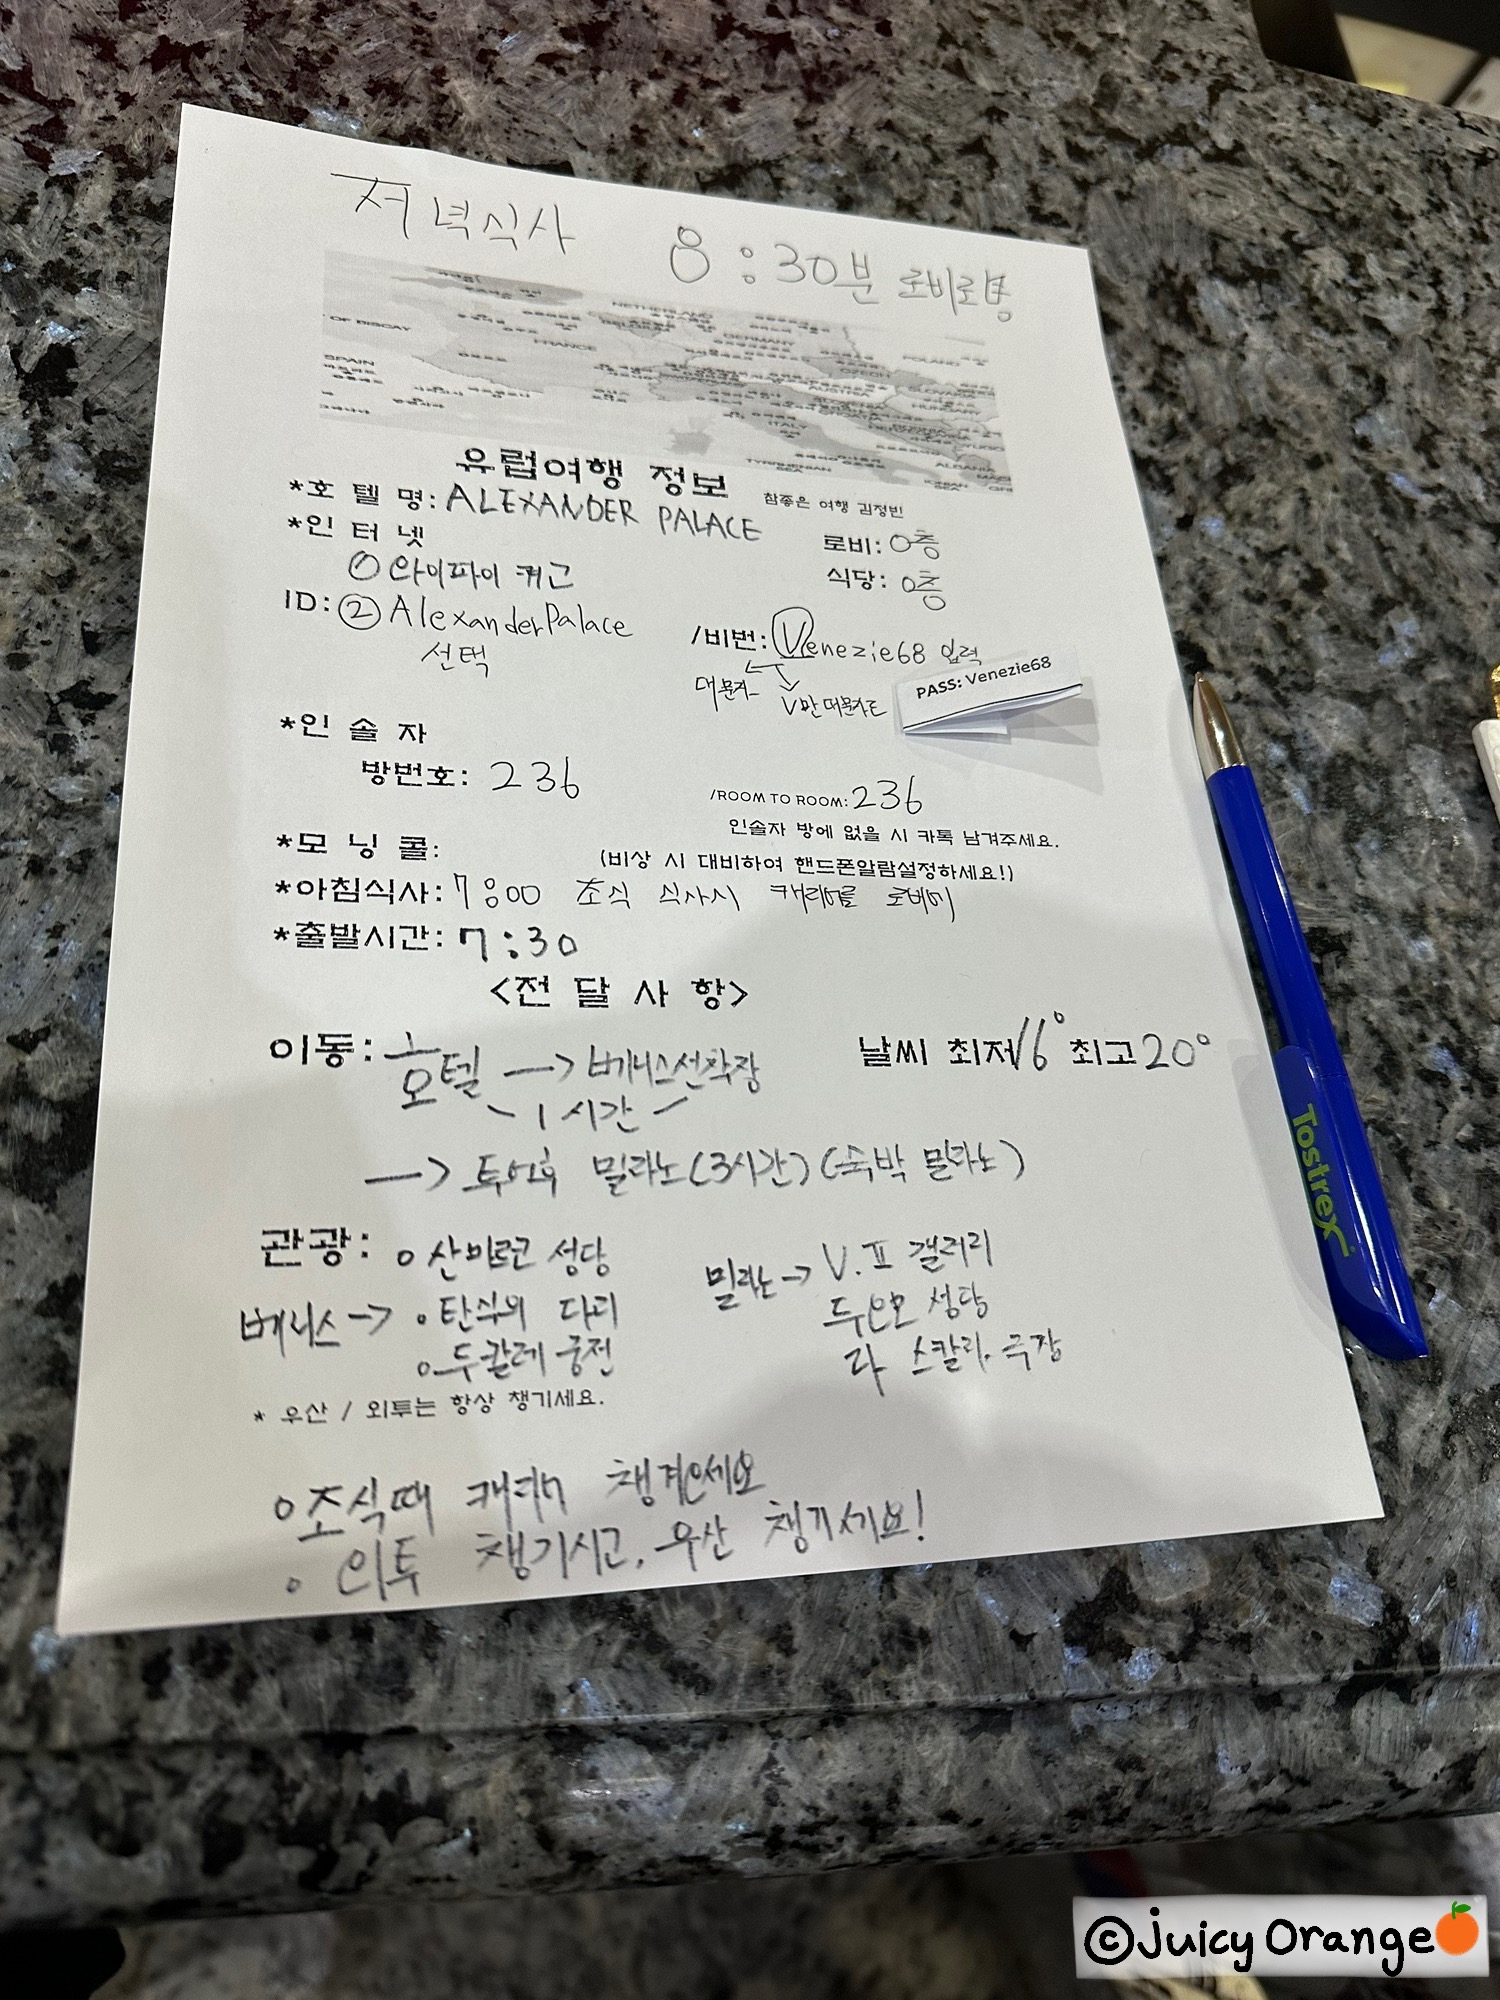 저녁식사 8:30분 로비로
OF BISCAY
NETHERLAND
FRANCE
GERMANY
POLAND
SPAIN
HUNGARY
ITALY
TYRRHENIAN SEA
ALBANIA
IONIAN SEA
유럽여행 정보 참좋은 여행 김정빈
*호 텔 명: ALEXANDER PALACE
로비: 0층
*인 터 넷
식당: 0층
① 와이파이 켜고
ID: ② AlexanderPalace /비번: Venezie68 입력
선택
대문자 V만 대문자
PASS: Venezie68
*인 솔 자
방번호: 236 /ROOM TO ROOM: 236
인솔자 방에 없을 시 카톡 남겨주세요.
*모 닝 콜: (비상 시 대비하여 핸드폰알람설정하세요!)
*아침식사: 7:00 조식 식사시 캐리어를 로비에
*출발시간: 7:30
<전 달 사 항>
이동: 호텔 → 베니스선착장 날씨 최저16° 최고20°
1시간
→ 투어후 밀라노(3시간) (숙박 밀라노)
관광: ㅇ산마르코 성당 밀라노→ V.Ⅱ 갤러리
베니스→ ㅇ탄식의 다리 두오모 성당
ㅇ두칼레 궁전 라 스칼라 극장
* 우산 / 외투는 항상 챙기세요.
ㅇ조식때
ㅇ외투 챙기시고, 우산 챙기세요!
©Juicy Orange
Tostrex